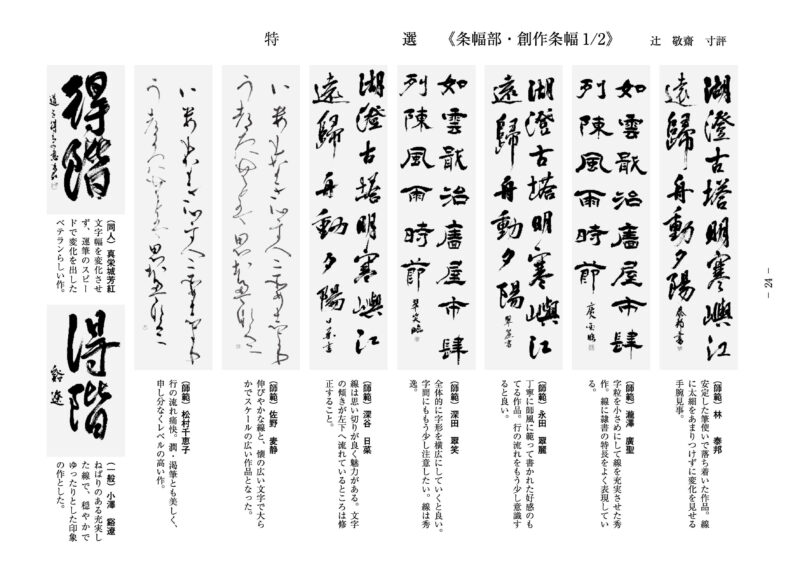 特選《条幅部・創作条幅1/2》
辻 敬齋 寸評
湖澄古塔明寒嶼江
遠歸舟動夕陽
泰邦書
(師範) 林 泰邦
安定した筆使いで落ち着いた作品。線
に太細をあまりつけずに変化を見せる
手腕見事。
如雲戢治廬屋市肆
列陳風雨時節
(師範) 瀧澤 廣聖
字粒を小さめにして線を充実させた秀
作。線に隷書の特長をよく表現してい
る。
湖澄古塔明寒嶼江
遠歸舟動夕陽
(師範) 永田 翠麗
丁寧に師風に範って書かれた好感のも
てる作品。行の流れをもう少し意識す
ると良い。
如雲戢治廬屋市肆
列陳風雨時節
(師範) 深田 翠笑
全体的に字形を横広にしていくと良い。
字間にももう少し注意したい。線は秀
逸。
湖澄古塔明寒嶼江
遠歸舟動夕陽
(師範) 深谷 日菜
線は思い切りが良く魅力がある。文字
の傾きが左下へ流れているところは修
正すること。
(師範) 佐野 麦静
伸びやかな線と、懐の広い文字で大ら
かでスケールの広い作品となった。
(師範) 松村千恵子
行の流れ痛快。潤・渇筆とも美しく、
申し分なくレベルの高い作。
得階
(同人) 真栄城芳紅
文字幅を変化させ
ず、運筆のスピー
ドで変化を出した
ベテランらしい作。
得階
谿遼
(一般) 小澤 谿遼
ねばりのある充実し
た線で、穏やかで
ゆったりとした印象
の作とした。
- 24 -